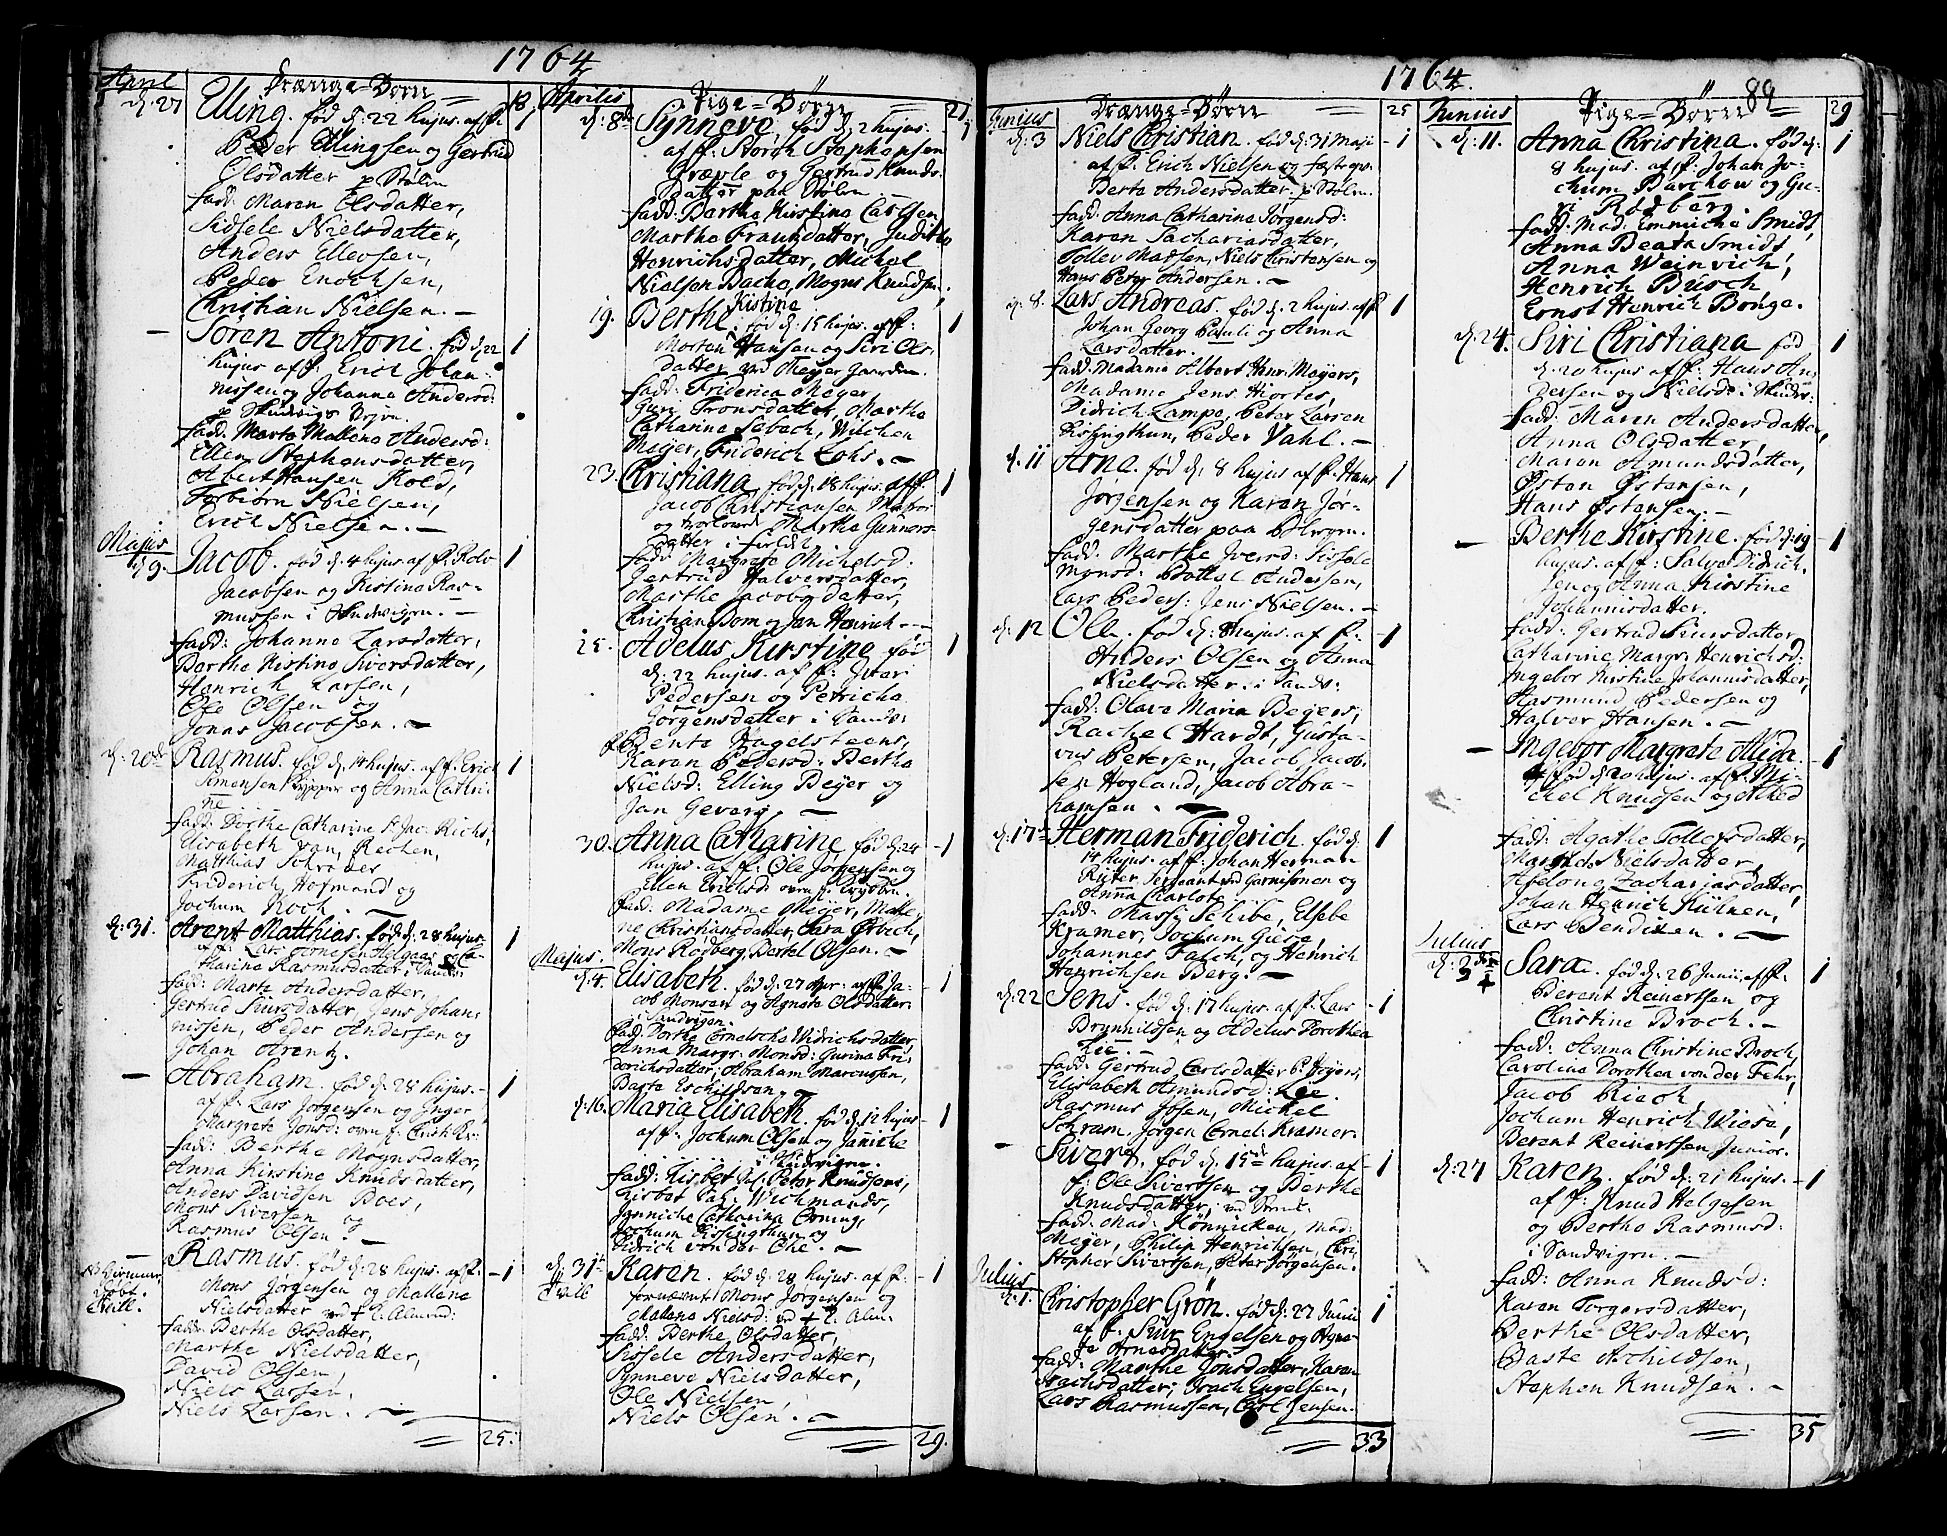 1764
April
Drænge=Børn
18
d: 27
Elling. fød d: 22 hujus. af F:
Peder Ellingsen og Gertrud
Olsdatter p Stølen
fadd: Maren Olsdatter,
Sidsele Nielsdatter,
Anders Ellevsen,
Peder Enochsen,
Christian Nielsen. —
— Søren Antoni. fød d: 22 1
hujus af F: Erich Johan-
nissen og Johanna Andersd:
p Skudevigs
fadd: Marta Mallena Andersd:
Ellen Stephensdatter,
Albert Hansen Kold,
Torbiørn Nielsen,
Erich Nielsen. —
Majus
d 9. Jacob. fød d: 4 hujus. af F: Rolv 1
Jacobsen og Kistina Ras-
mussen i Sandvigen. —
fadd: Johanna Larsdatter,
Berthe Kistina Siversdatter,
Henrich Larsen,
Ole Olsen og
Jonas Jacobsen. —
d: 20de Rasmus. fød d: 14 hujus. af F: Erich 1
Simensen og Anna Cathri-
ne
fadd: Dorthe Catharine Sl. Jac: Richs,
Elisabeth van Rechen,
Matthias Schrøder
Friderich Hofmand og
Jochum Koch. —
d: 31. Arent Matthias. fød d: 28 hujus. 1
af F: Lars og Ca-
tharina Rasmusdatter i Sandv:
fadd: Marte Andersdatter,
Gertrud Siursdatter, Jens Johan-
nissen, Peder Andersen og
Johan Arentz.
— Abraham. fød d: 28 hujus. 1
af F: Lars Jørgensen og Inger
Margrete Jonsd:
fadd: Berthe Mognsdatter,
Anna Kirstine Knudsdatter,
Anders Davidsen Boes,
Mons Siversen og
Rasmus Olsen. —
— Rasmus. fød d: 28 hujus. af F: — 1
Mons Jørgensen og Mallena
Nielsdatter ved
Tvill.
fadd: Berthe Olsdatter,
Marthe Nielsdatter,
David Olsen,
Niels Larsen,
Niels Larsen. —
25.
Aprilis
Pige=Børn
21
d: 8de Synneve, fød d: 2 hujus. 1
af F: Storch Stephensen
og Gertrud Knuds-
datter paa Stølen. —
fadd: Bartha Kirstina Carlsen,
Martha Frantzdatter, Judithe
Henrichsdatter, Michel
Nielsen Bache, Mogns Knudsen.
19. Berthe Kistine. fød d: 15 hujus. af F: 1
Morten Hansen og Siri Ols-
datter ved Meyer
fadd: Friderica Meyer
Guri Tronsdatter, Martha
Catharina Sebach, Wilchen
Meyer, Friderich Lohs. —
23. Christiana. fød d: 18 hujus. af F: 1
Jacob Christiansen
og Martha Gunners-
datter i
fadd: Margrete Michelsd:
Gertrud Halversdatter,
Marthe Jacobsdatter,
Christian Dom og Jan Henrich —
25. Adelus Kirstine fød 1
d: 22 hujus. af F: Iver
Pedersen og Petricha
Jørgensdatter i Sandv:
fadd: Bente Hagelsteens,
Karen Pedersd: Bertha
Nielsd: Elling Beyer og
Jan Geverg. —
30. Anna Catharine fød d: 24 — 1
hujus. af F: Ole Jørgensen og
Ellen Erichsd:
fadd: Madame Meyer, Malle-
ne Christiansdatter, Sara Grbech,
Mons Rodberg, Bertel Olsen. —
Majus.
d: 4. Elisabeth. fød d: 27 Apr. af F: Ja- 1
cob Monsen og Agnete Olsdatter
i Sandvigen.
fadd: Dorthe Cornelsche Didrichsdatter,
Anna Margr: Monsd: Gurina Fri-
derichsdatter, Abraham Marcussen,
Baste Eschildsen. —
d: 16. Maria Elisabeth. fød d: 12 hujus 1
af F: Jochum Olsen og Janiche
i Sandvigen.
fadd: Lisbet Sl. Peter Knudsens,
Lisbet Sal: Wichmands,
Synniche Catharina Orning,
Jochum Pissingthun og
Didrich von der Ohe. —
d: 31te Tvill. Karen. fød d: 28 hujus. af F: — 1
fornævnte Mons Jørgensen og
Mallena Nielsd: ved
fadd: Berthe Olsdatter,
Sissele Andersdatter,
Synneve Nielsdatter,
Ole Nielsen,
Niels Olsen. —
29.
1764.
89
Junius
Drænge=Børn
25
d: 3 Niels Christian. fød d: 31 Maji — 1
af F: Erich Nielsen og
Berta Andersdatter. p Stølen.
fadd: Anna Catharina Jørgensd:
Karen Zachariasdatter,
Tollev Madsen, Niels Christensen og
Hans Peter Andersen. —
d: 8. Lars Andreas. fød d: 2 hujus. af F: 1
Johan Georg Pauli og Anna
Larsdatter.
fadd: Madame Albert Henr: Meyers,
Madame Jens Hiortes,
Didrich Lampe, Peter Larsen
Pissingthun, Peder Vahl. —
d: 11 Arna. fød d: 8 hujus. af F: Hans 1
Jørgensen og Karen Jør-
gensdatter paa
fadd: Marthe Iversd: Sissele
Monsd: Bottel Andersen,
Lars Peders: Jens Nielsen. —
d: 12 Ole. fød d: 8 hujus. af F: — 1
Anders Olsen og Anna
Nielsdatter. i Sandv:
fadd: Olava Maria Begers,
Rachel Hardt, Gusta-
vus Petersen, Jacob Jacob-
sen Hogland, Jacob Abra-
hamsen. —
d: 17de Herman Friderich. fød d: 1
14 hujus. af F: Johan Herman
Ryter Sergeant ved Garnisonen og
Anna Charlote
fadd: Massy Schibe, Elsebe
Kramer, Jochum Giese,
Johannes Falch, og Henrich
Henrichsen Berg. —
d: 22 Jens. fød d: 17 hujus. af F: Lars — 1
Brynnildsen og Adelus Dorothea
Lee. —
fadd: Gertrud Carlsdatter
Elisabeth Amundsd: Lee.
Rasmus Ibsen, Michel
Schram, Jørgen Cornel: Kramer.
— Sivert. fød d: 15de hujus. af — 1
F: Ole Sivertsen og Berthe
Knudsdatter,
fadd: Mad: Hønnicken, Mad:
Meyer, Philip Henrichsen, Chri-
stopher Sivertsen, Peter Jørgensen.
Julius
d: 1. Christopher Grøn. fød d: 27 Junii 1
af F: Siur Engelsen og Agne-
te Arnesdatter.
fadd: Marthe Jonsdatter, Karen
Isachsdatter, Isach Engelsen,
Lars Rasmussen, Carl Jensen.
33
Junius
Pige=Børn
29
d: 11. Anna Christina. fød d: 1
8 hujus. af F: Johan Jo-
chum Barchow og Gu-
ri Rodberg.
fadd: Mad: Emmiche Smidt,
Anna Beata Smidt
Anna Weinvich,
Henrich Busch
Ernst Henrich Bonge.
d: 24. Siri Christiana fød 1
d: 20 hujus. af F: Hans An-
dersen og Nielsd:
fadd: Maren Andersdatter,
Anna Olsdatter,
Maren Amundsdatter,
Østen Østensen,
Hans Østensen. —
— Berthe Kirstine. fød d: 19 — 1
hujus. af F: Salve Didrich-
sen og Anna Kirstine
Johannisdatter.
fadd: Gertrud Siursdatter
Catharine Margr: Henrichsd:
Ingebor Kirstine Johannisdatter,
Rasmund Pedersen og
Halver Hansen. —
— Ingebor Margrete Alida. 1
fød d: 20 hujus. af F: Mi-
chel Knudsen og Alhed
fadd: Agathe Tollefsdatter,
Margrete Nielsdatter,
Abelone Zachariasdatter,
Johan Henrich Kühnen,
Lars Bendixen. —
Julius
d: 3 Sara. fød d: 26 Junii. af F: 1
Berent Reinertsen og
Christine Broch. —
fadd: Anna Christine Broch
Carolina Dorothea von der Fehr,
Jacob Riech,
Jochum Henrich Wiese,
Berent Reinertsen Junior.
d: 27 Karen. fød d: 21 hujus. — 1
af F: Knud Helgesen
og Bertha Rasmusd:
i Sandvigen. —
fadd: Anna Knudsd:
Karen Torgersdatter,
Berthe Olsdatter,
Baste Achildsen,
Stephen Knudsen. —
35